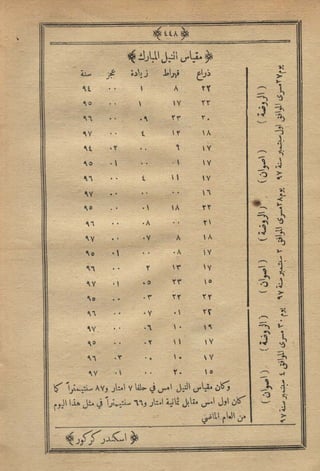 ﴿ ٤٤٨ ﴾
﴿ مقياس النيل المبارك ﴾
ذراع قيراط زيادة عجز سنة
٢٢ ٨ ١ ٠٠ ٩٤
٢٢ ١٧ ١ ٠٠ ٩٥
٢٠ ٢٣ ٠٩ ٠٠ ٩٦
١٨ ١٣ ٤ ٠٠ ٩٧
١٧ ٦ ٠٠ ٠٢ ٩٤
١٧ ١ ٠٠ ٠١ ٩٥
١٧ ١١ ٤ ٠٠ ٩٦
١٦ ٠٠ ٠٠ ٠٠ ٩٧
٢٢ ١٨ ٠١ ٠٠ ٩٥
٢١ ٠٠ ٠٨ ٠٠ ٩٦
١٨ ٨ ٠٧ ٠٠ ٩٧
١٧ ٠٨ ٠٠ ٠١ ٩٥
١٧ ١٣ ٢ ٠٠ ٩٦
١٥ ٢٣ ٠٥ ٠١ ٩٧
٢٢ ٢٢ ٠٣ ٠٠ ٩٥
٢٢ ٠١ ٠٧ ٠٠ ٩٦
١٩ ١٠ ٠٦ ٠٠ ٩٧
١٧ ١١ ٠٢ ٠٠ ٩٥
١٧ ١٠ ٠٠ ٠٣ ٩٦
١٥ ٢٠ ٠٠ ٠١ ٩٧
يوم ٢٧ مسرى الموافق اول سبتمبر سنة ٩٧
( الروضة )
( اصوان )
يوم ٢٨ مسرى الموافق ٢ سبتمبر سنة ٩٧
( الروضة )
( اصوان )
يوم ٣٠ مسرى الموافق ٤ سبتمبر سنة ٩٧
( الروضة )
( اصوان )
وكان مقياس النيل امس في حلفا ٧ امتار و٨٧ سنتيمتراً كما
كان اول امس مقابل ثمانية امتار و٦٦ سنتيمتراً في مثل هذا اليوم
من العام الماضي
﴿ اسكندر كركور ﴾